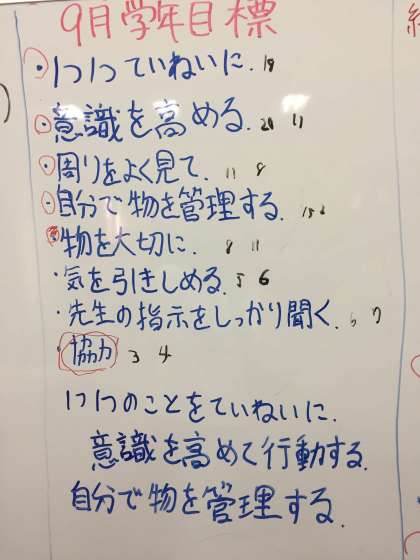 9月学年目標
・1つ1つていねいに. 19
・意識を高める. 20 11
・周りをよく見て. 11 8
・自分で物を管理する.
・物を大切に. 8 11
・気を引きしめる. 5 6
・先生の指示をしっかり聞く. 7
・協力 3 4
1つ1つのことをていねいに.
意識を高めて行動する.
自分で物を管理する.